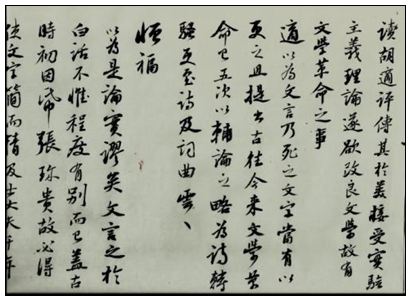 讀胡適評傳其於美接受實驗
主義理論遂欲改良文學故有
文學革命之事
適以為文言乃死之文字當有以
更之且提出古往今來文學革
命已五次以輔論之略為詩轉
騷更至詩及詞曲雲〻
恒福
以為是論實謬矣文言之於
白話不惟程度有別而已蓋古
時初因帋張珎貴故必得
使文字簡而精及士大夫千年